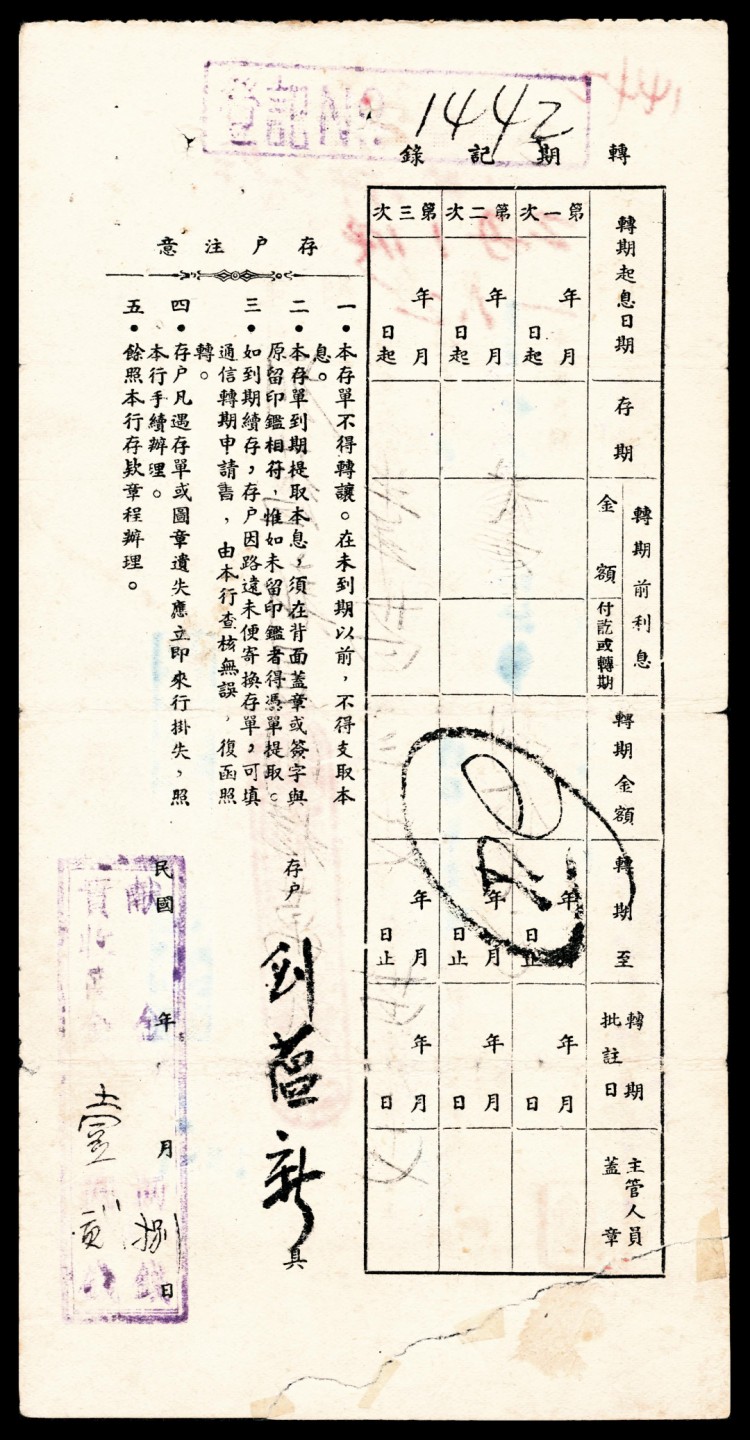 1442
轉期記錄
轉期起息日期
存期
轉期前利息
金額
付訖或轉期
轉期金額
轉期至
轉期批註日
主管人員蓋章
第一次
年月日起
年月日止
年月日
第二次
年月日起
年月日止
年月日
第三次
年月日起
年月日止
年月日
存户注意
一•本存單不得轉讓。在未到期以前,不得支取本
息。
二•本存單到期提取本息,須在背面蓋章或簽字與
原留印鑑相符,惟如未留印鑑者得憑單提取。
三•如到期續存,存户因路遠未便寄換存單,可填
通信轉期申請書,由本行查核無誤,復函照
轉。
四•存户凡遇存單或圖章遺失應立即來行掛失,照
本行手續辦理。
五•餘照本行存款章程辦理。
存户 劉蘊新 具
民國 年 月 捌 日
壹 貳